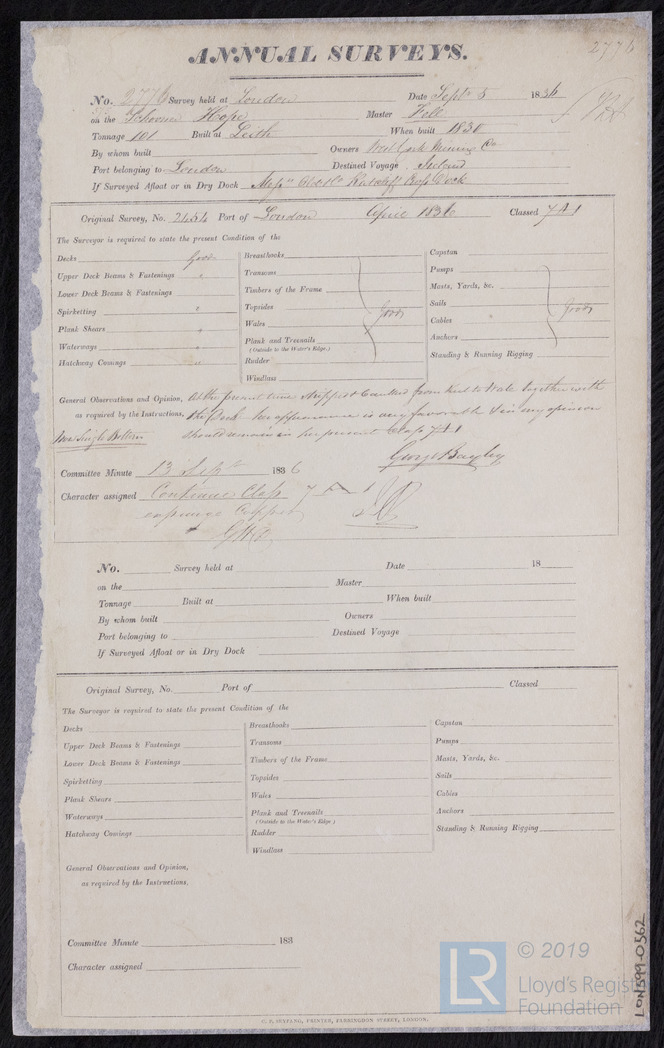 2776
ANNUAL SURVEYS.
No. 2776 Survey held at London Date Septr 5 1836
on the Schooner Hope Master Fell
Tonnage 101 Built at Leith When built 1830
By whom built Owners West Cork Mining Co
Port belonging to London Destined Voyage Ireland
If Surveyed Afloat or in Dry Dock Dock
Original Survey, No. 2454 Port of London April 1836 Classed 7 A 1
The Surveyor is required to state the present Condition of the
Decks Good
Upper Deck Beams & Fastenings "
Lower Deck Beams & Fastenings
Spirketting "
Plank Shears "
Waterways "
Hatchway Comings "
Breasthooks
Transoms
Timbers of the Frame
Topsides
Wales
Good
Plank and Treenails
(Outside to the Water's Edge.)
Rudder
Windlass
Capstan
Pumps
Masts, Yards, &c.
Sails
Good
Cables
Anchors
Standing & Running Rigging
General Observations and Opinion, At the present time stripped & Caulked from Keel to Wale together with
as required by the Instructions, the Deck - her appearance is very favorable & in my opinion
Single Bottom should remain in her present Class 7 A 1
George Bayley
Committee Minute 13 Septr 1836
Character assigned Continue Class 7 A 1
Copper
No. Survey held at Date 18
on the Master
Tonnage Built at When built
By whom built Owners
Port belonging to Destined Voyage
If Surveyed Afloat or in Dry Dock
Original Survey, No. Port of Classed
The Surveyor is required to state the present Condition of the
Decks
Upper Deck Beams & Fastenings
Lower Deck Beams & Fastenings
Spirketting
Plank Shears
Waterways
Hatchway Comings
Breasthooks
Transoms
Timbers of the Frame
Topsides
Wales
Plank and Treenails
(Outside to the Water's Edge.)
Rudder
Windlass
Capstan
Pumps
Masts, Yards, &c.
Sails
Cables
Anchors
Standing & Running Rigging
General Observations and Opinion,
as required by the Instructions.
Committee Minute 183
Character assigned
C. F. SEYFANG, PRINTER, FARRINGDON STREET, LONDON.
LON599-0562
LR
© 2019
Lloyd's Register
Foundation